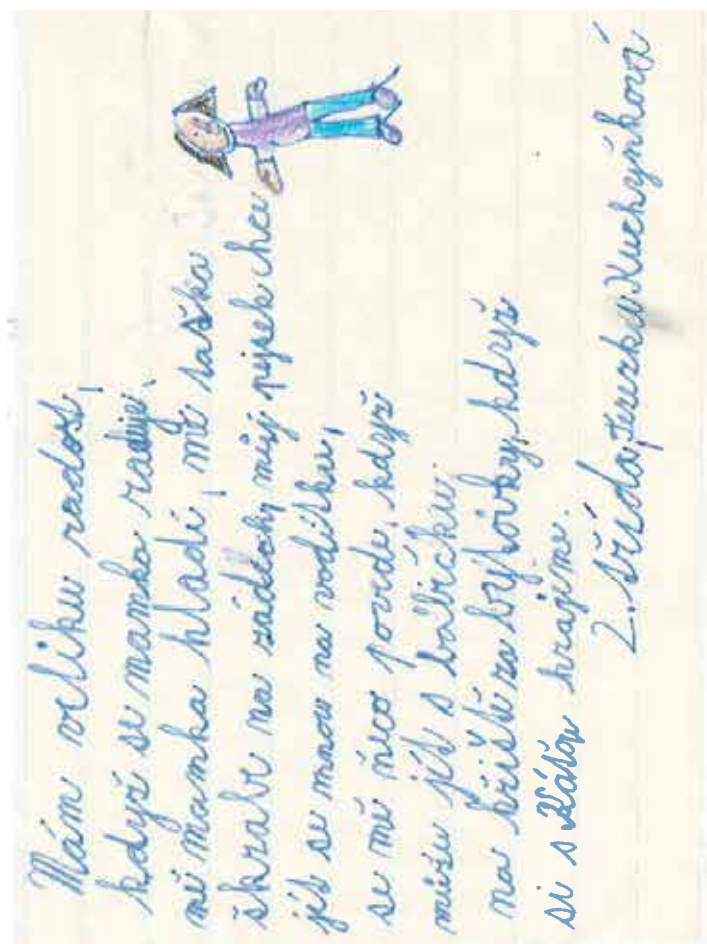 Mám veliku radost,
když se mamka raduje,
mě mamka hladí, mě taťka
škrabe na zádech, můj pejsek chce
jít se mnou na vodítku,
se mě něco povede, když
můžu jít s babičkou
na hřiště za bytovky, když
si s Káťou hrajime.
2. třída, Terezka Kuchyňková